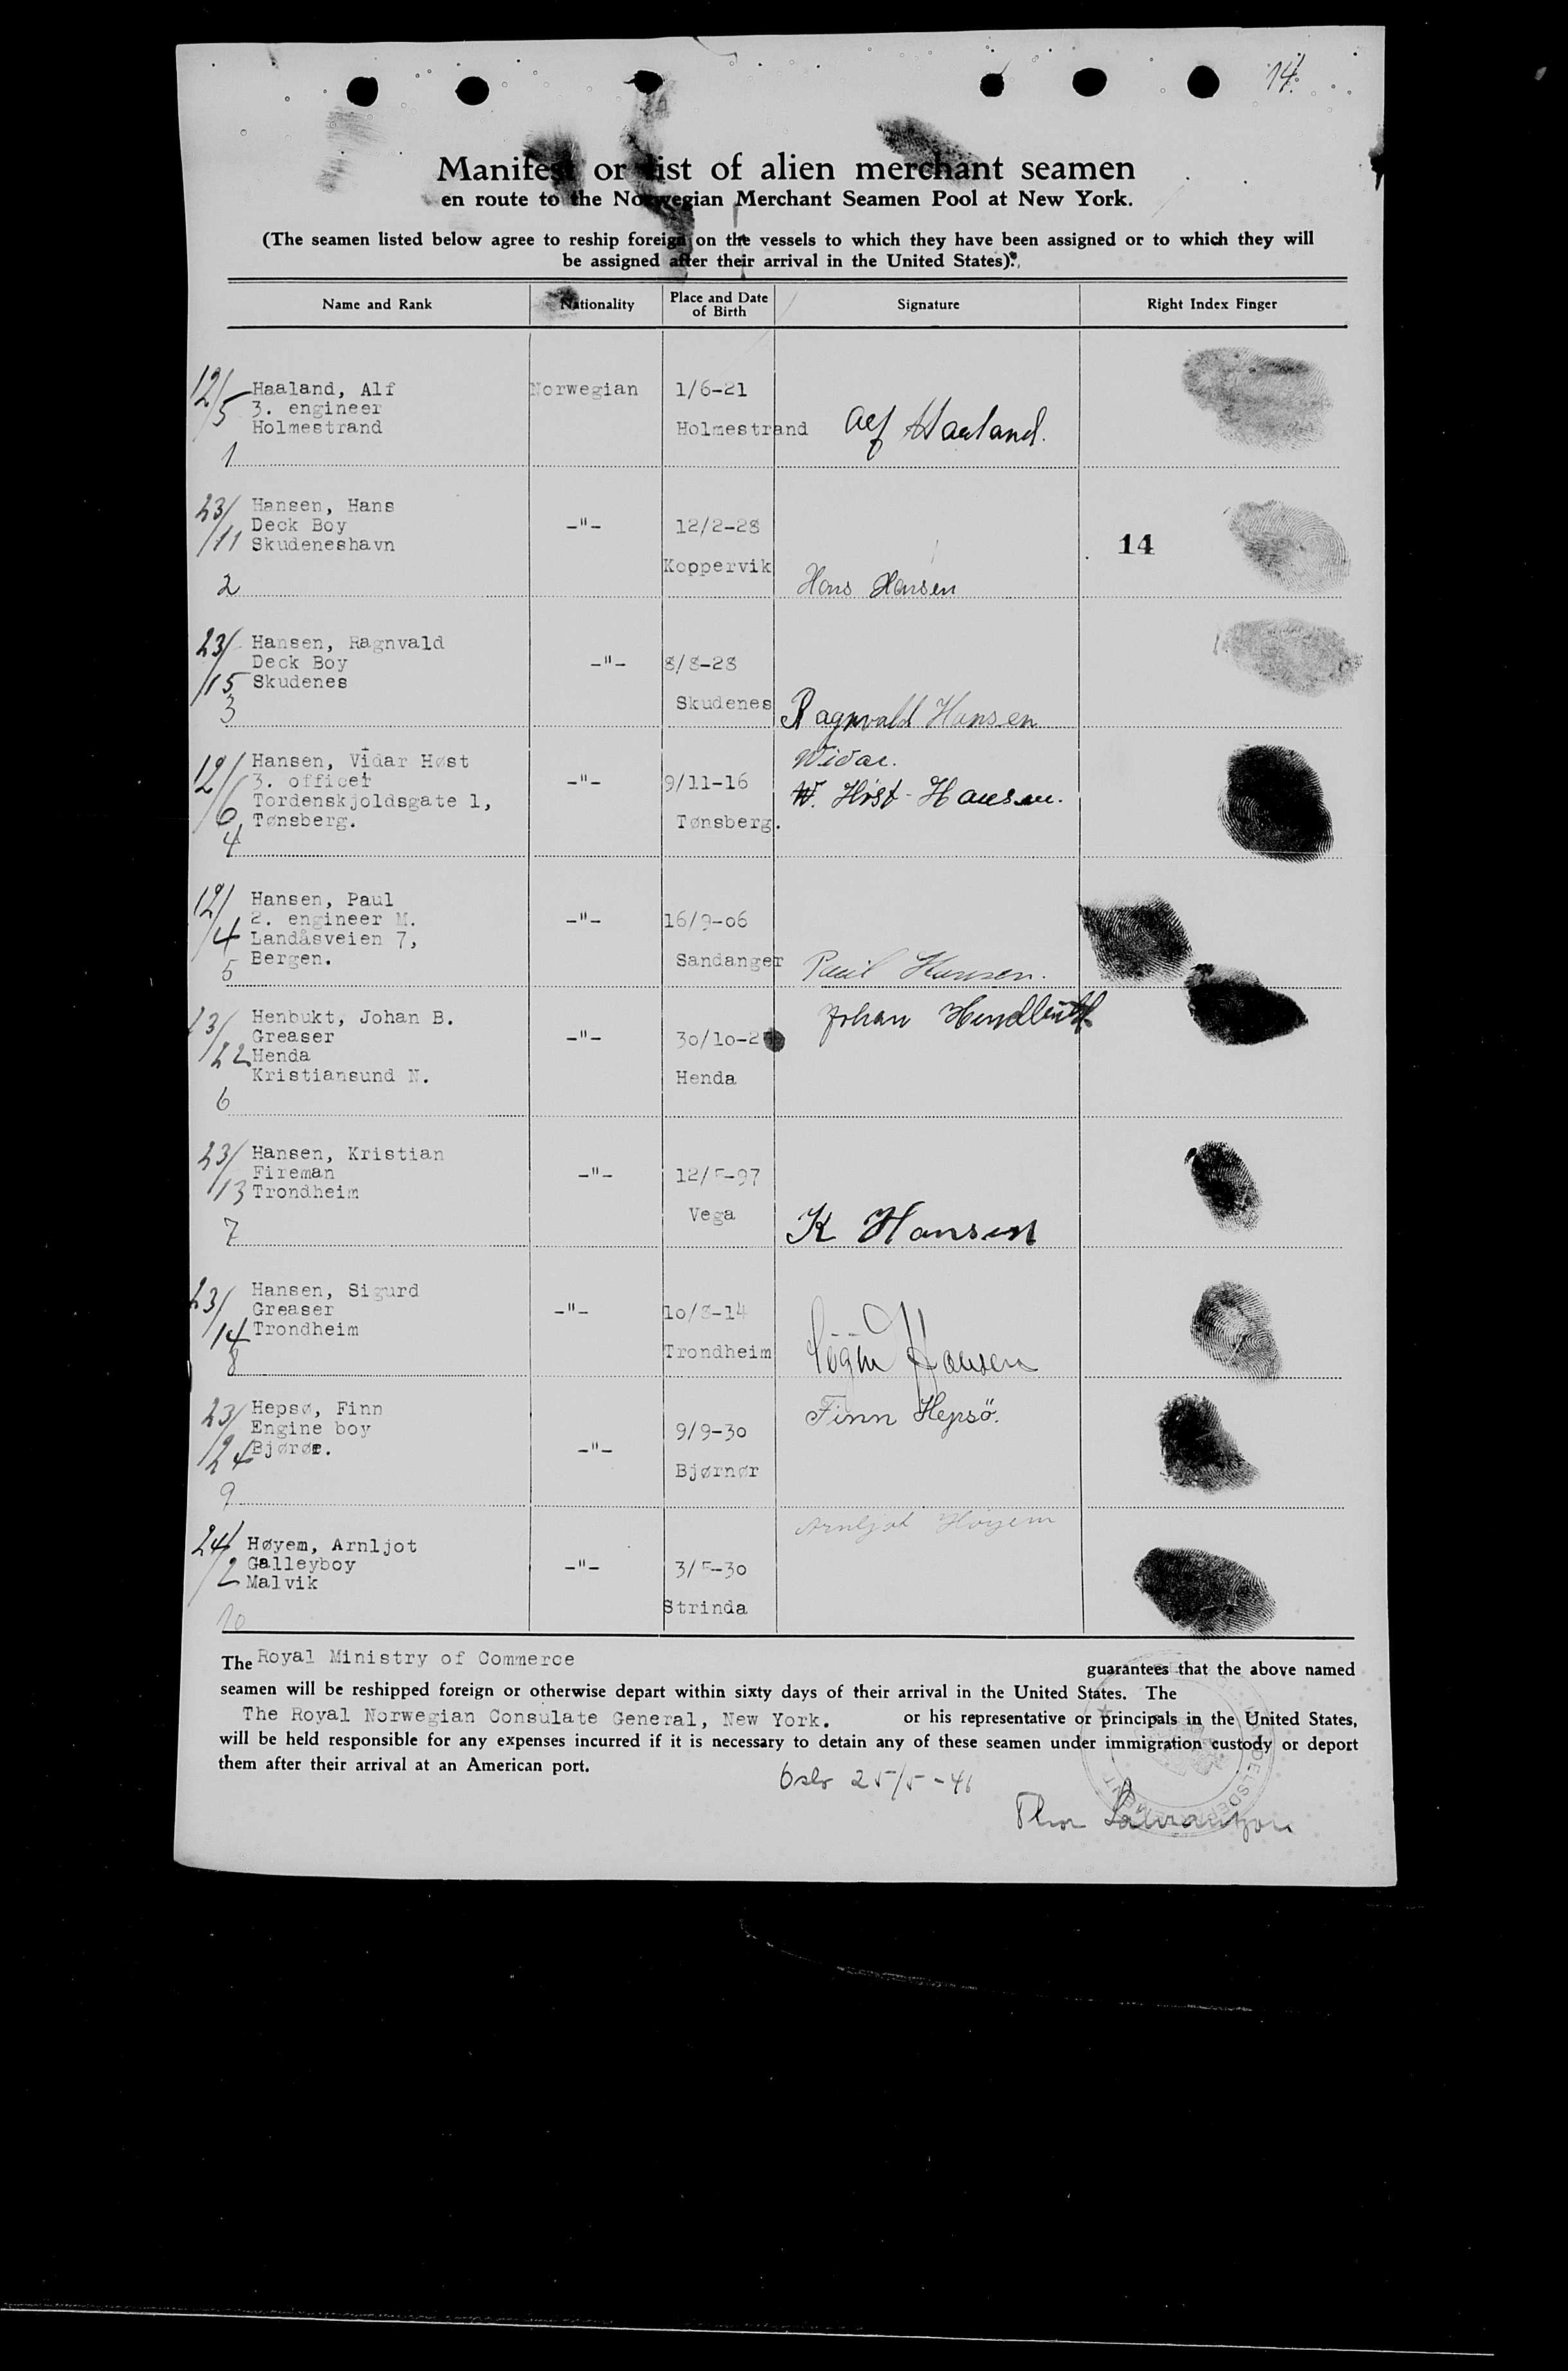 14.
Manifest or list of alien merchant seamen
en route to the Norwegian Merchant Seamen Pool at New York.
(The seamen listed below agree to reship foreign on the vessels to which they have been assigned or to which they will
be assigned after their arrival in the United States).
Name and Rank Nationality Place and Date of Birth Signature Right Index Finger
12/5 Haaland, Alf Norwegian 1/6-21
3. engineer
Holmestrand Holmestrand Alf Haaland.
1
23/11 Hansen, Hans
Deck Boy -"- 12/2-28
Skudeneshavn 14
Koppervik
2 Hans Hansen
23/15 Hansen, Ragnvald
Deck Boy -"- 8/8-28
Skudenes
3 Skudenes Ragnvald Hansen
12/6 Hansen, Vidar Høst Widar.
3. officer -"- 9/11-16 W. Høst-Hansen.
Tordenskjoldsgate 1,
Tønsberg. Tønsberg.
4
12/4 Hansen, Paul
2. engineer M. -"- 16/9-06
Landåsveien 7,
Bergen. Sandanger Paul Hansen.
5
23/22 Henbukt, Johan B. Johan
Greaser -"- 30/10-2
Henda
Kristiansund N. Henda
6
23/13 Hansen, Kristian
Fireman -"- 12/5-97
Trondheim
Vega K Hansen
7
23/14 Hansen, Sigurd
Greaser -"- 10/8-14
Trondheim
Trondheim Hansen
8
23/24 Hepsø, Finn Finn Hepsö.
Engine boy 9/9-30
Bjørør. -"-
Bjørnør
9
24/2 Høyem, Arnljot Arnljot Høyem
Galleyboy -"- 3/5-30
Malvik
Strinda
10
The Royal Ministry of Commerce guarantees that the above named
seamen will be reshipped foreign or otherwise depart within sixty days of their arrival in the United States. The
The Royal Norwegian Consulate General, New York. or his representative or principals in the United States,
will be held responsible for any expenses incurred if it is necessary to detain any of these seamen under immigration custody or deport
them after their arrival at an American port.
Oslo 25/5-46
Thor